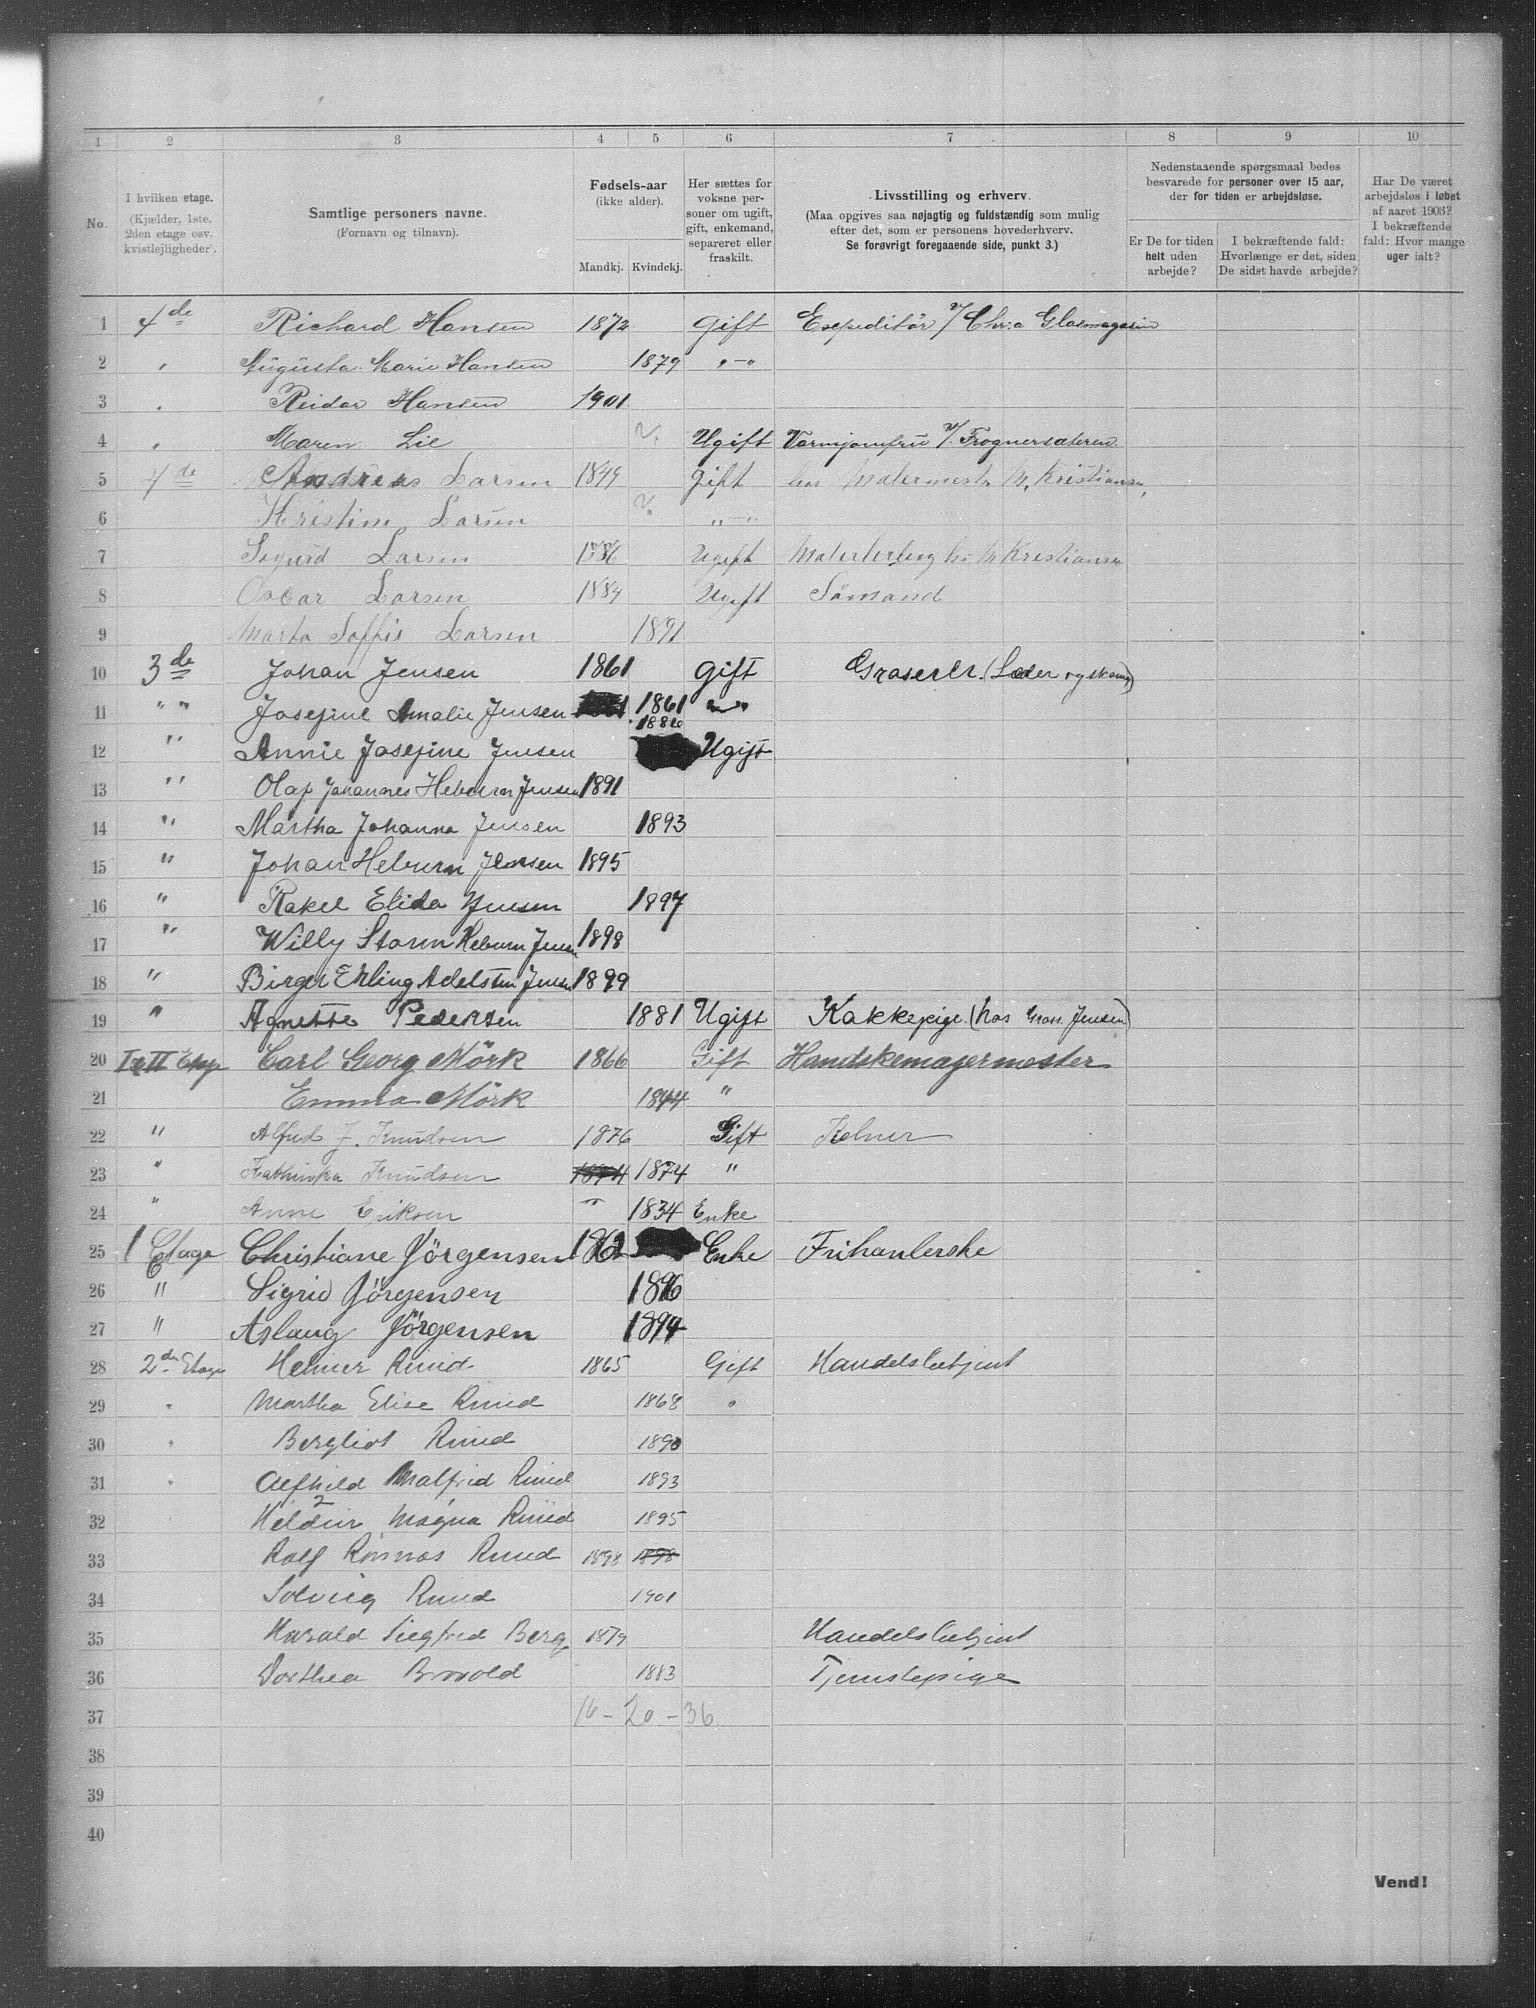 1 2 3 4 5 6 7 8 9 10
No.
I hvilken etage.
(Kjælder, 1ste, 2den etage osv. kvistlejligheder).
Samtlige personers navne.
(Fornavn og tilnavn).
Fødsels-aar
(ikke alder).
Mandkj. Kvindekj.
Her sættes for voksne personer om ugift, gift, enkemand, separeret eller fraskilt.
Livsstilling og erhverv.
(Maa opgives saa nøjagtig og fuldstændig som mulig efter det, som er personens hovederhverv.
Se forøvrigt foregaaende side, punkt 3.)
Nedenstaaende spørgsmaal bedes besvarede for personer over 15 aar, der for tiden er arbejdsløse.
Er De for tiden helt uden arbejde?
I bekræftende fald: Hvorlænge er det, siden De sidst havde arbejde?
Har De været arbejdsløs i løbet af aaret 1903? I bekræftende fald: Hvor mange uger ialt?
1 4de Richard Hansen 1872 Gift Expeditør v/ Chr:a Glasmagasin
2 " Augusta Marie Hansen 1879 "–"
3 " Reidar Hansen 1901
4 " Maren Lie Ugift Varmjomfru v/. Frognersæteren
5 4de Andreas Larsen 1849 gift hos Malermestr M. Kristiansen
6 Kristine Larsen "–"
7 Sigurd Larsen 1886 Ugift Malerlerling hos M Kristiansen
8 Oscar Larsen 1884 Ugift Sömand
9 Marta Soffie Larsen 1891
10 3de Johan Jensen 1861 Gift Groserer. (Læder og skomag)
11 " " Josefine Amalie Jensen 1861 "–"
12 " Annie Josefine Jensen 1886 Ugift
13 " Olaf Johannes Heburn Jensen 1891
14 " Martha Johanna Jensen 1893
15 " Johan Heburn Jensen 1895
16 " Rakel Elida Jensen 1897
17 " Willy Storm Heburn Jensen 1898
18 " Birger Erling Adelsten Jensen 1899
19 " Agnette Pedersen 1881 Ugift Kokkepige (hos Gross. Jensen)
20 I & II Etage Carl Georg Mörk 1866 Gift Handskemagermester
21 Emma Mörk 1844 "
22 " Alfred J. Knudsen 1876 Gift Kelner
23 " Kathinka Knudsen 1874 1874 "
24 " Anne Eriksen " 1834 Enke
25 1 Etage Christiane Jörgensen 1862 Enke Frihanlerske
26 " Sigrid Jörgensen 1896
27 " Aslaug Jörgensen 1894
28 2den Etage Heiner Ruud 1865 Gift Handelsbetjent
29 " Martha Elise Ruud 1868 "
30 " Bergliot Ruud 1890
31 " Alfhild Malfrid Ruud 1893
32 Hildur Magna Ruud 1895
33 Rolf Rönnos Ruud 1898 1898
34 Solveig Ruud 1901
35 Harald Siegfred Berg 1879 Handelsbetjent
36 Dorthea Brovold 1883 Tjenestepige
37 16 – 20 – 36
38
39
40
Vend!